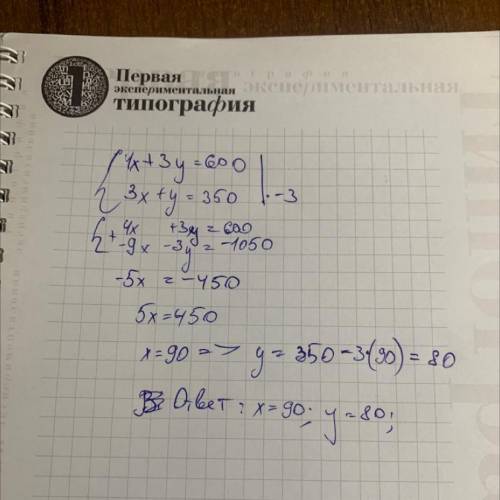 Первая
экспериментальная
типография
экспериментальная
4x+3y=600
3x+y=350 | · -3
+ 4x +3y=600
-9x -3y=-1050
-5x = -450
5x=450
x=90 => y = 350-3·(90) = 80
Ответ: x=90; y=80;